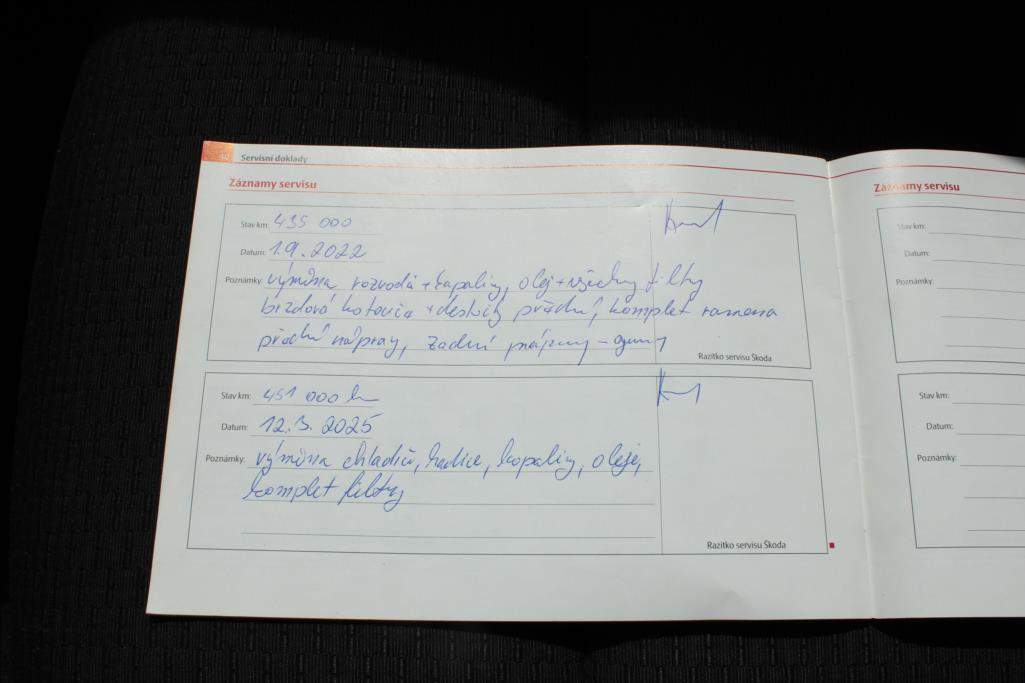 Servisní doklady
Záznamy servisu
Stav km: 435 000
Datum: 1.9.2022
Poznámky: výměna rozvodů + kapaliny, olej + všechny filtry
brzdová kotouče + destičky přední, komplet ramena
přední nápravy, zadní pružiny - gumy
Razítko servisu Škoda
Stav km: 451 000 km
Datum: 12.3.2025
Poznámky: výměna chladičů, hadice, kapaliny, oleje,
komplet filtry
Razítko servisu Škoda
Záznamy servisu
Stav km:
Datum:
Poznámky:
Stav km:
Datum:
Poznámky: